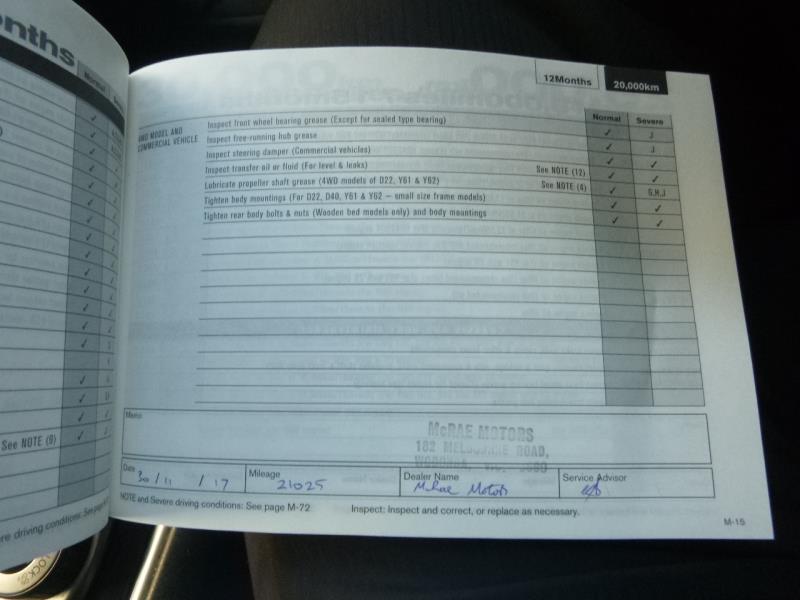 onths
Normal
See NOTE (9)
12Months
20,000km
Normal
Severe
4WD MODEL AND
COMMERCIAL VEHICLE
Inspect front wheel bearing grease (Except for sealed type bearing) ✓ J
Inspect free-running hub grease ✓ J
Inspect steering damper (Commercial vehicles) ✓ ✓
Inspect transfer oil or fluid (For level & leaks) See NOTE (12) ✓ ✓
Lubricate propeller shaft grease (4WD models of D22, Y61 & Y62) See NOTE (4) ✓ G,H,J
Tighten body mountings (For D22, D40, Y61 & Y62 – small size frame models) ✓ ✓
Tighten rear body bolts & nuts (Wooden bed models only) and body mountings ✓ ✓
Memo
McRAE MOTORS
182 MELBOURNE ROAD,
WODONGA, VIC. 3690
Date 30/11/17
Mileage 21025
Dealer Name McRae Motors
Service Advisor
NOTE and Severe driving conditions: See page M-72
Inspect: Inspect and correct, or replace as necessary.
M-15
re driving conditions: See
LOCK